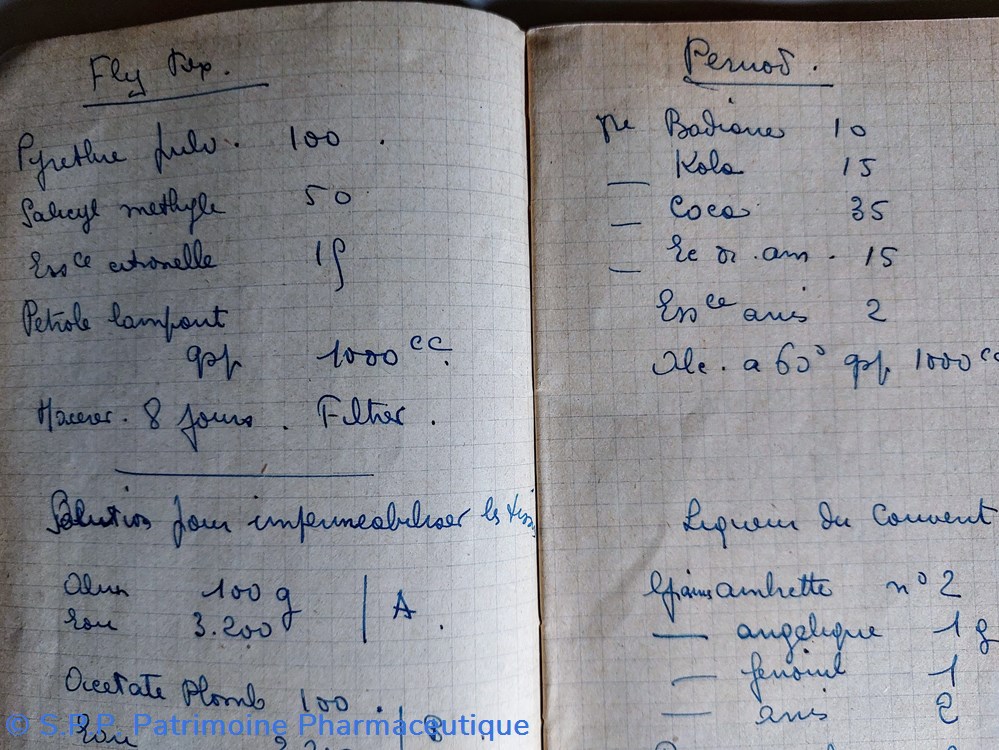 Fly Tox.
Pyrèthre pulv. 100.
Salicyl méthyle 50
Ess ce citronelle 15
Petrole lampant
qsp 1000 cc.
Macerer. 8 jours. Filtrer.
Solution pour impermeabiliser les tissus
Alun 100 g
Eau 3.200
A.
Acetate Plomb 100.
Eau
B
Pernod.
Badiane 10
— Kola 15
— Coca 35
— Ec or. am. 15
Ess ce anis 2
Alc. a 60° qsp 1000 cc
Liqueur du Couvent
Grains ambrette n° 2
— angelique 1 g
— fenouil 1
— anis 2
© S.P.P. Patrimoine Pharmaceutique